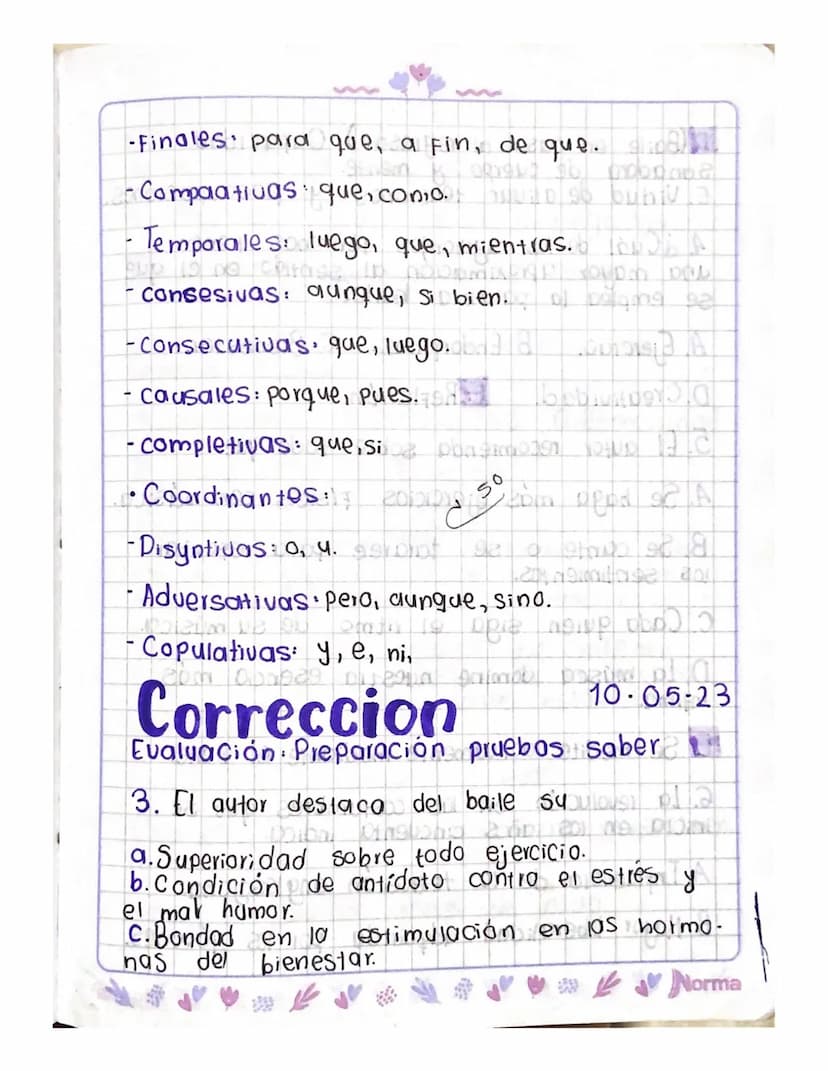 -Finales: para que, a fin, de que.
-Compaativas: que, como.
- Temporales: luego, que, mientras.
- Consesivas: aunque, si bien.
-Consecutivas: que, luego.
- causales: porque, pues.
-completivas: que, si
• Coordinantes:
50
-Disyntivas: o, u.
- Adversativas: pero, aunque, sino.
- Copulativas: y, e, ni,
Correccion 10.05.23
Evaluación: Preparación pruebas saber
3. El autor destaca del baile su
a. Superioridad sobre todo ejercicio.
b. Condición de antídoto contra el estrés y
el mal humor.
C. Bondad en la estimulación en las hormo-
nas del bienestar.
Norma